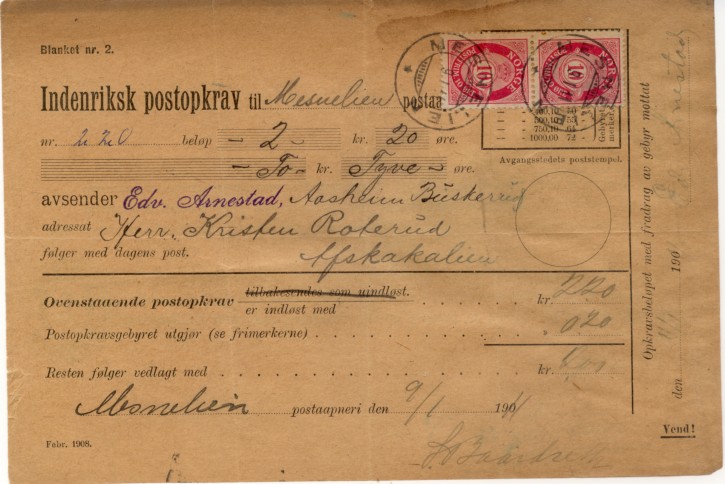 Blanket nr. 2.
NORGE
10
NESNELIEN
Indenriksk postopkrav til Mesnelien postaa
nr. 220 beløp - 2 - kr. 20 øre.
- To - kr. Tyve - øre.
500,10 53
750,10 64
1000,00 72
Gebyr
merker.
Avgangsstedets poststempel.
avsender Edv. Arnestad, Aasheim Buskerud
adressat Herr. Kristen Roterud
følger med dagens post.
Ovenstaaende postopkrav tilbakesendes som uindløst.
er indløst med kr. 2.20
Postopkravsgebyret utgjør (se frimerkerne) 0.20
Resten følger vedlagt med kr. 2.00
Mesnelien postaapneri den 9/1 1911
Febr. 1908.
Vend!
Opkravsbeløpet med fradrag av gebyr mottat
den 190